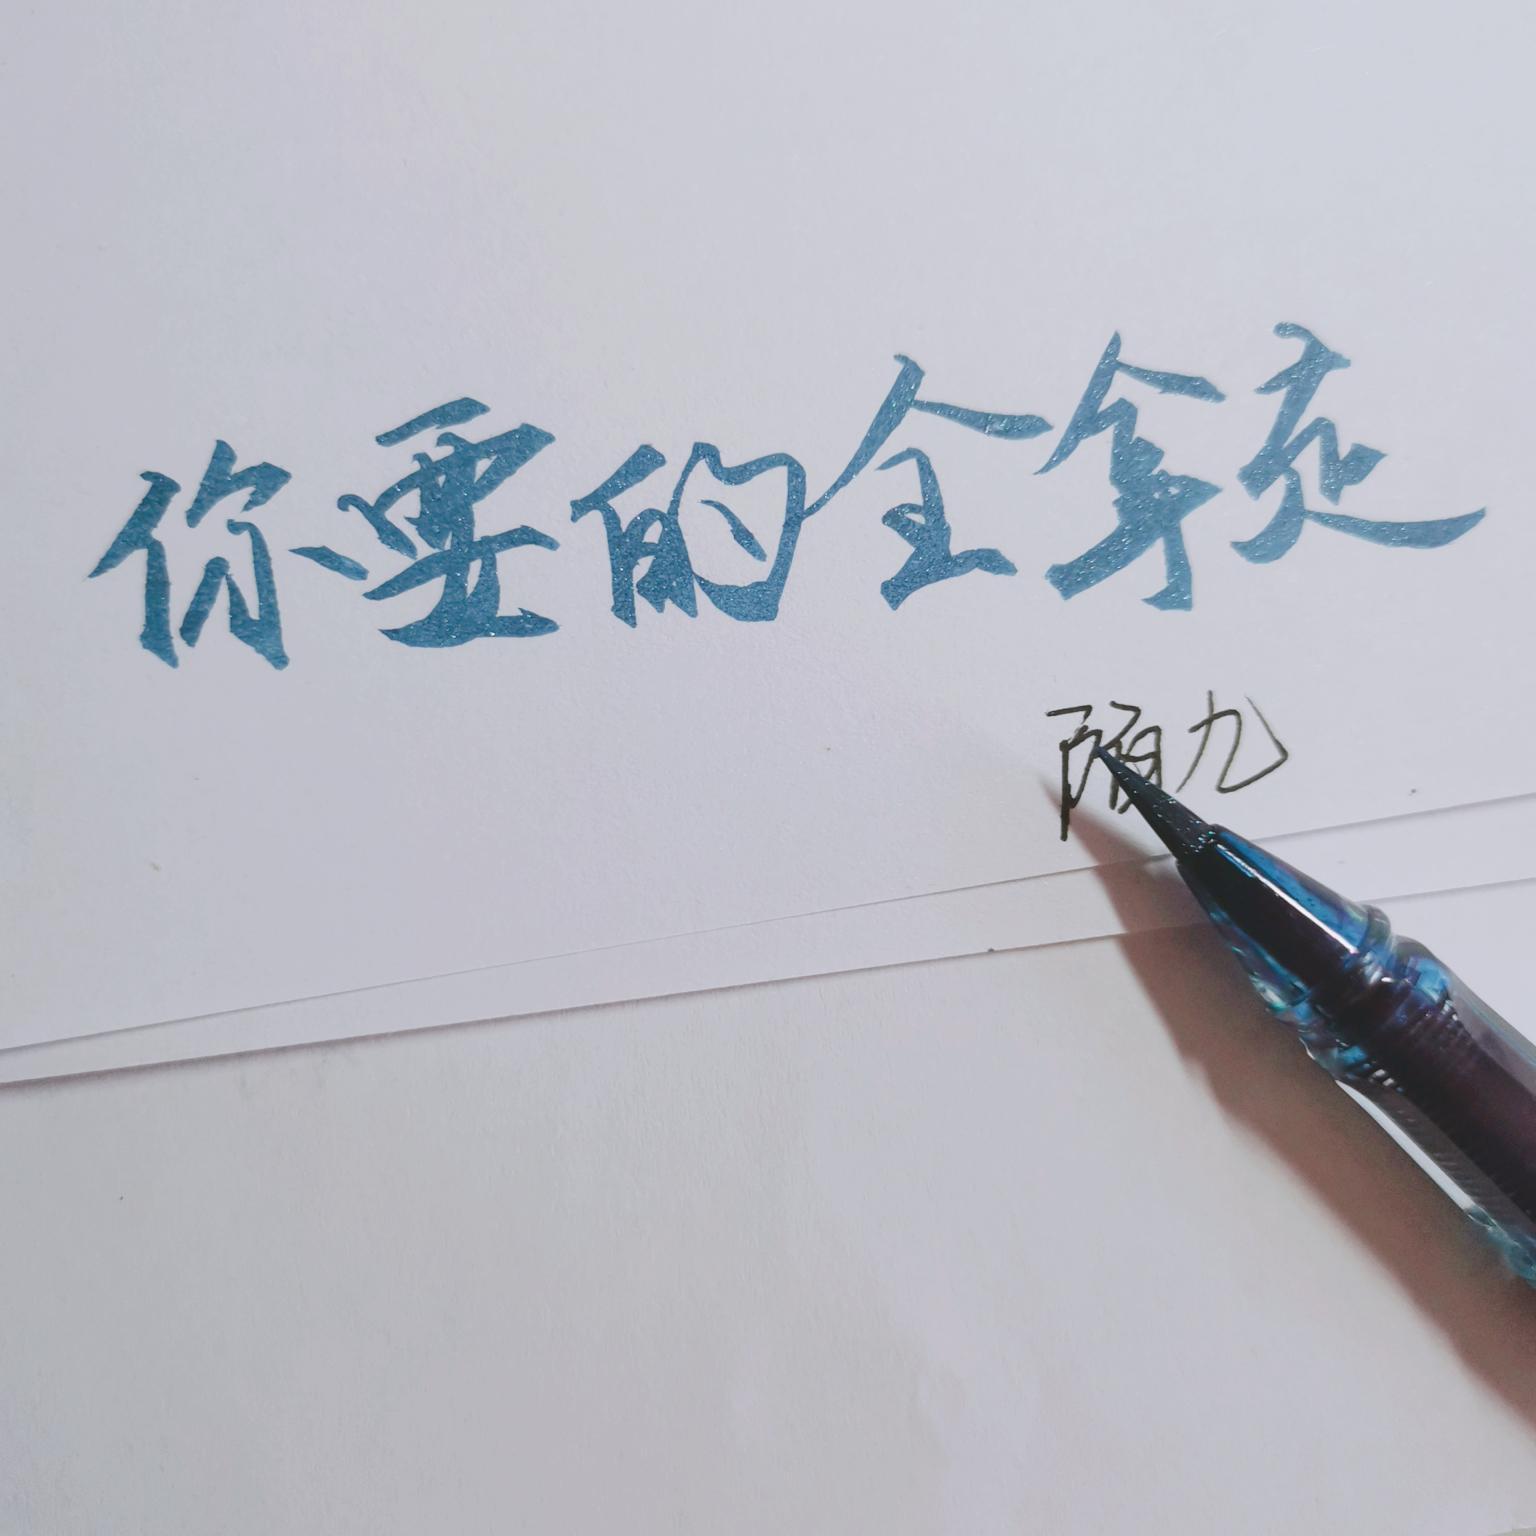 你要的全拿走
陌九